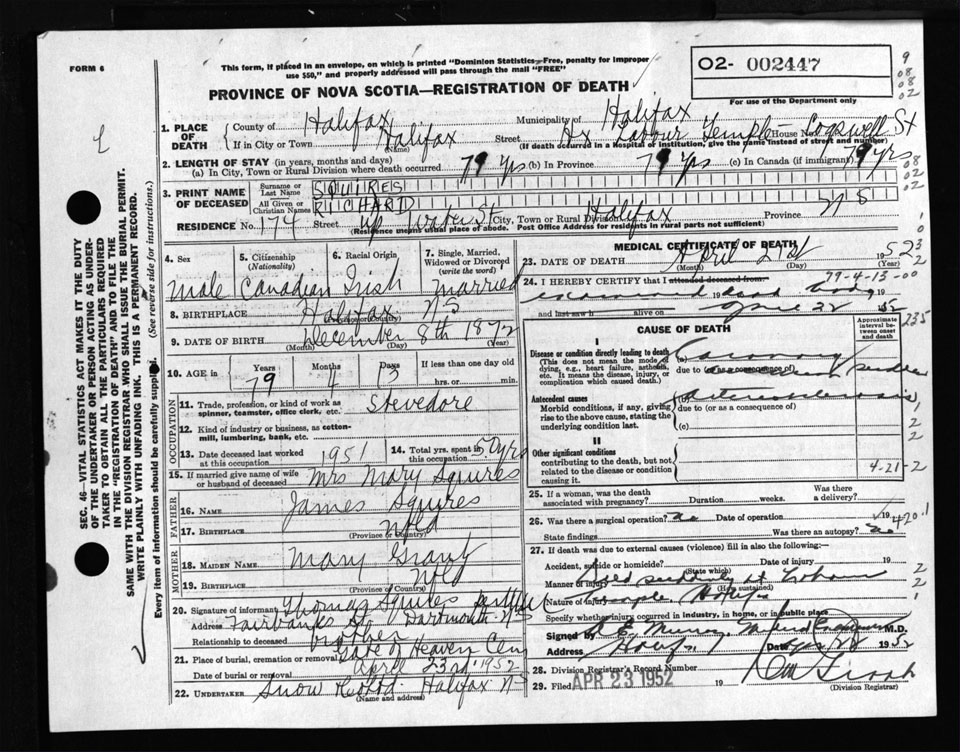 FORM 6
This form, if placed in an envelope, on which is printed "Dominion Statistics—Free, penalty for improper
use $50," and properly addressed will pass through the mail "FREE"
O2- 002447
9
08
08
02
PROVINCE OF NOVA SCOTIA—REGISTRATION OF DEATH
For use of the Department only
1. PLACE OF DEATH
County of Halifax Municipality of Halifax
If in City or Town Halifax Street Hx Labour Temple - House No. Cogswell St
(Name) (If death occurred in a Hospital or institution, give the name instead of street and number)
2. LENGTH OF STAY (in years, months and days)
(a) In City, Town or Rural Division where death occurred 79 Yrs (b) In Province 79 yrs (c) In Canada (if immigrant) 79 yrs
08
02
3. PRINT NAME OF DECEASED
Surname or Last Name SQUIRES
All Given or Christian Names RICHARD
RESIDENCE No. 174 Street up Water St City, Town or Rural Division Halifax Province N S
(Residence means usual place of abode. Post Office Address for residents in rural parts not sufficient)
4. Sex
Male
5. Citizenship (Nationality)
Canadian
6. Racial Origin
Irish
7. Single, Married, Widowed or Divorced (write the word)
Married
8. BIRTHPLACE Halifax N S
(Province or Country)
9. DATE OF BIRTH December 8th 1872
(Month) (Day) (Year)
10. AGE in Years Months Days If less than one day old
79 4 13 hrs. or min.
OCCUPATION
11. Trade, profession, or kind of work as spinner, teamster, office clerk, etc. Stevedore
12. Kind of industry or business, as cotton-mill, lumbering, bank, etc.
13. Date deceased last worked at this occupation 1951
14. Total yrs. spent in this occupation 50 yrs
15. If married give name of wife or husband of deceased Mrs Mary Squires
FATHER
16. NAME James Squires
17. BIRTHPLACE Nfld
(Province or Country)
MOTHER
18. MAIDEN NAME Mary Grant
19. BIRTHPLACE Nfld
(Province or Country)
20. Signature of informant Thomas Squires
Address Fairbanks St Dartmouth N S
Relationship to deceased brother
21. Place of burial, cremation or removal Gate of Heaven Cem
Date of burial or removal April 23rd 1952
22. UNDERTAKER Snow & Co Ltd. Halifax N S
(Name and address)
MEDICAL CERTIFICATE OF DEATH
23. DATE OF DEATH April 21st 1952
(Month) (Day) (Year)
79-4-13-00
24. I HEREBY CERTIFY that I attended deceased from
examined dead body 19
and last saw h alive on 22 1952
235
CAUSE OF DEATH
Approximate interval between onset and death
I
Disease or condition directly leading to death
(This does not mean the mode of dying, e.g., heart failure, asthenia, etc. It means the disease, injury, or complication which caused death.
(a) Coronary
due to (or as a consequence of) sudden
Antecedent causes
Morbid conditions, if any, giving rise to the above cause, stating the underlying condition last.
(b) Arteriosclerosis
due to (or as a consequence of)
(c)
II
Other significant conditions
contributing to the death, but not related to the disease or condition causing it.
4-21-2
25. If a woman, was the death associated with pregnancy? Duration weeks. Was there a delivery?
26. Was there a surgical operation? no Date of operation 19
420.1
State findings Was there an autopsy? no
27. If death was due to external causes (violence) fill in also the following:—
Accident, suicide or homicide? Date of injury 19
(State which)
Manner of injury died suddenly at Labour
(How sustained)
Nature of injury Temple Halifax
Specify whether injury occurred in industry, in home, or in public place
Signed by M.D.
Address Halifax 1952
28. Division Registrar's Record Number
29. Filed APR 23 1952 19
(Division Registrar)
SEC. 46—VITAL STATISTICS ACT MAKES IT THE DUTY
OF THE UNDERTAKER OR PERSON ACTING AS UNDER-
TAKER TO OBTAIN ALL THE PARTICULARS REQUIRED
IN THE "REGISTRATION OF DEATH" AND TO FILE THE
SAME WITH THE DIVISION REGISTRAR WHO SHALL ISSUE THE BURIAL PERMIT.
WRITE PLAINLY WITH UNFADING INK. THIS IS A PERMANENT RECORD.
Every item of information should be carefully supplied. (See reverse side for instructions.)